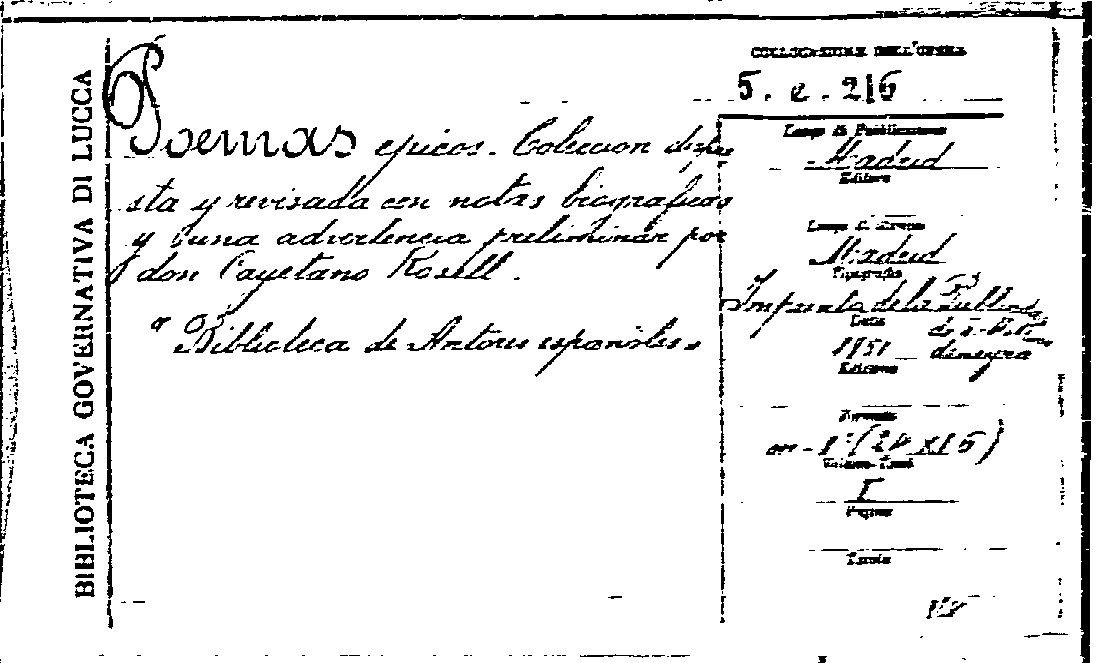 BIBLIOTECA GOVERNATIVA DI LUCCA
Poemas epicos. Coleccion dispue
sta y revisada con notas biograficas
y una advertencia preliminar por
don Cayetano Rosell.
"Biblioteca de Autores españoles"
COLLOCAZIONE DELL'OPERA
5. e. 216
Luogo di Pubblicazione
Madrid
Editore
Luogo di Stampa
Madrid
Tipografia
Imprenta de la Publicid.
Data
1851
Edizione
Formato
(24 x 16)
I
Pagine
Tavole